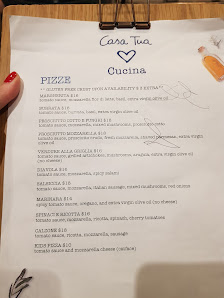 Casa Tua
Cucina
PIZZE
**GLUTEN FREE CRUST UPON AVAILABILITY $ EXTRA**
MARGHERITA $16
tomato sauce, mozzarella, basil, extra virgin olive oil
BURRATA $18
tomato sauce, burrata, basil, extra virgin olive oil
PROSCIUTTO COTTO E FUNGHI $18
tomato sauce, mozzarella,
PROSCIUTTO MOZZARELLA
tomato sauce, prosciutto crudo, mozzarella, shaved parmesan, extra virgin
olive oil
VERDURE ALLA GRIGLIA
tomato sauce, grilled mozzarella, arugula, extra virgin olive oil
(no cheese)
DIAVOLA
tomato sauce, mozzarella, spicy salami
SALSICCIA
tomato sauce, mozzarella, Italian sausage, mixed mushrooms, red onions
MARINARA
spicy tomato sauce, oregano, and extra virgin olive oil (no cheese)
SPINACI E RICOTTA $16
tomato sauce, mozzarella, ricotta, spinach, cherry tomatoes
CALZONE $18
tomato sauce, ricotta, mozzarella, sausage
KIDS PIZZA $10
tomato sauce and mozzarella cheese